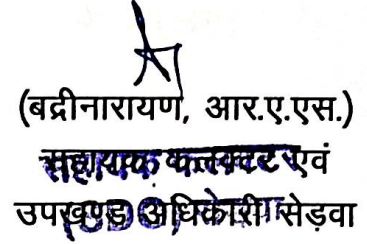 (बद्रीनारायण, आर.ए.एस.)
सहायक कलक्टर एवं
उपखण्ड अधिकारी सेड़वा
(SDO)